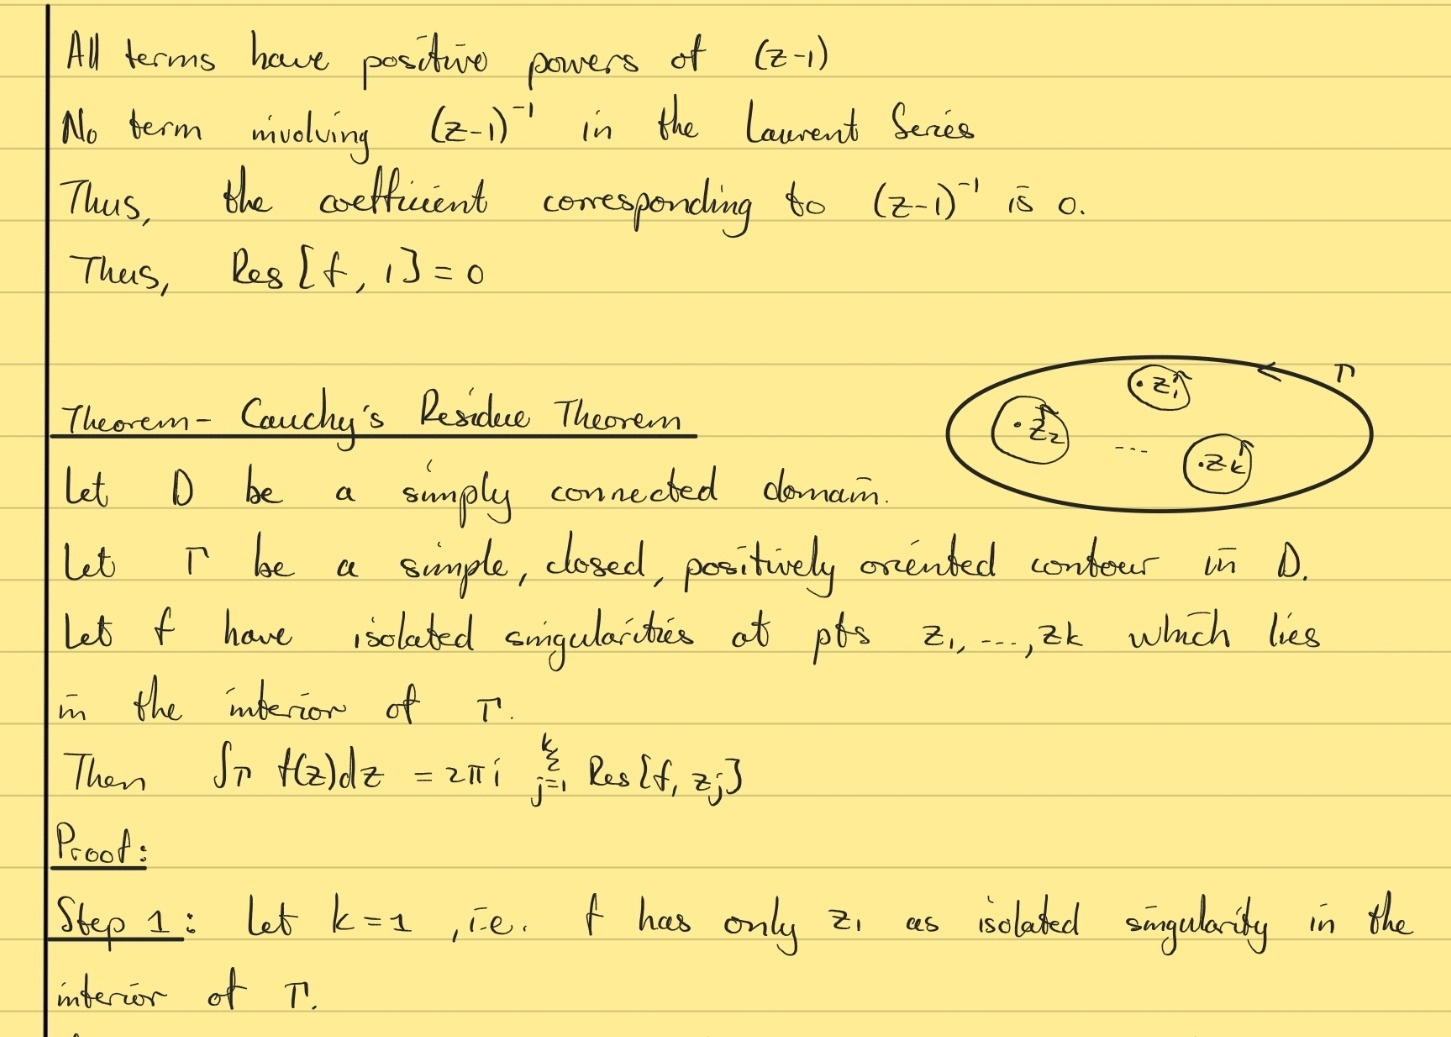 All terms have positive powers of (z-1)
No term involving (z-1)⁻¹ in the Laurent Series
Thus, the coefficient corresponding to (z-1)⁻¹ is 0.
Thus, Res [f, 1] = 0
Γ
z₁
z₂
... zk
Theorem- Cauchy's Residue Theorem
Let D be a simply connected domain.
Let Γ be a simple, closed, positively oriented contour in D.
Let f have isolated singularities at pts z₁, ..., zk which lies
in the interior of Γ.
Then ∫Γ f(z)dz = 2πi Σ_{j=1}^{k} Res[f, zj]
Proof:
Step 1: Let k=1, i.e. f has only z₁ as isolated singularity in the
interior of Γ.